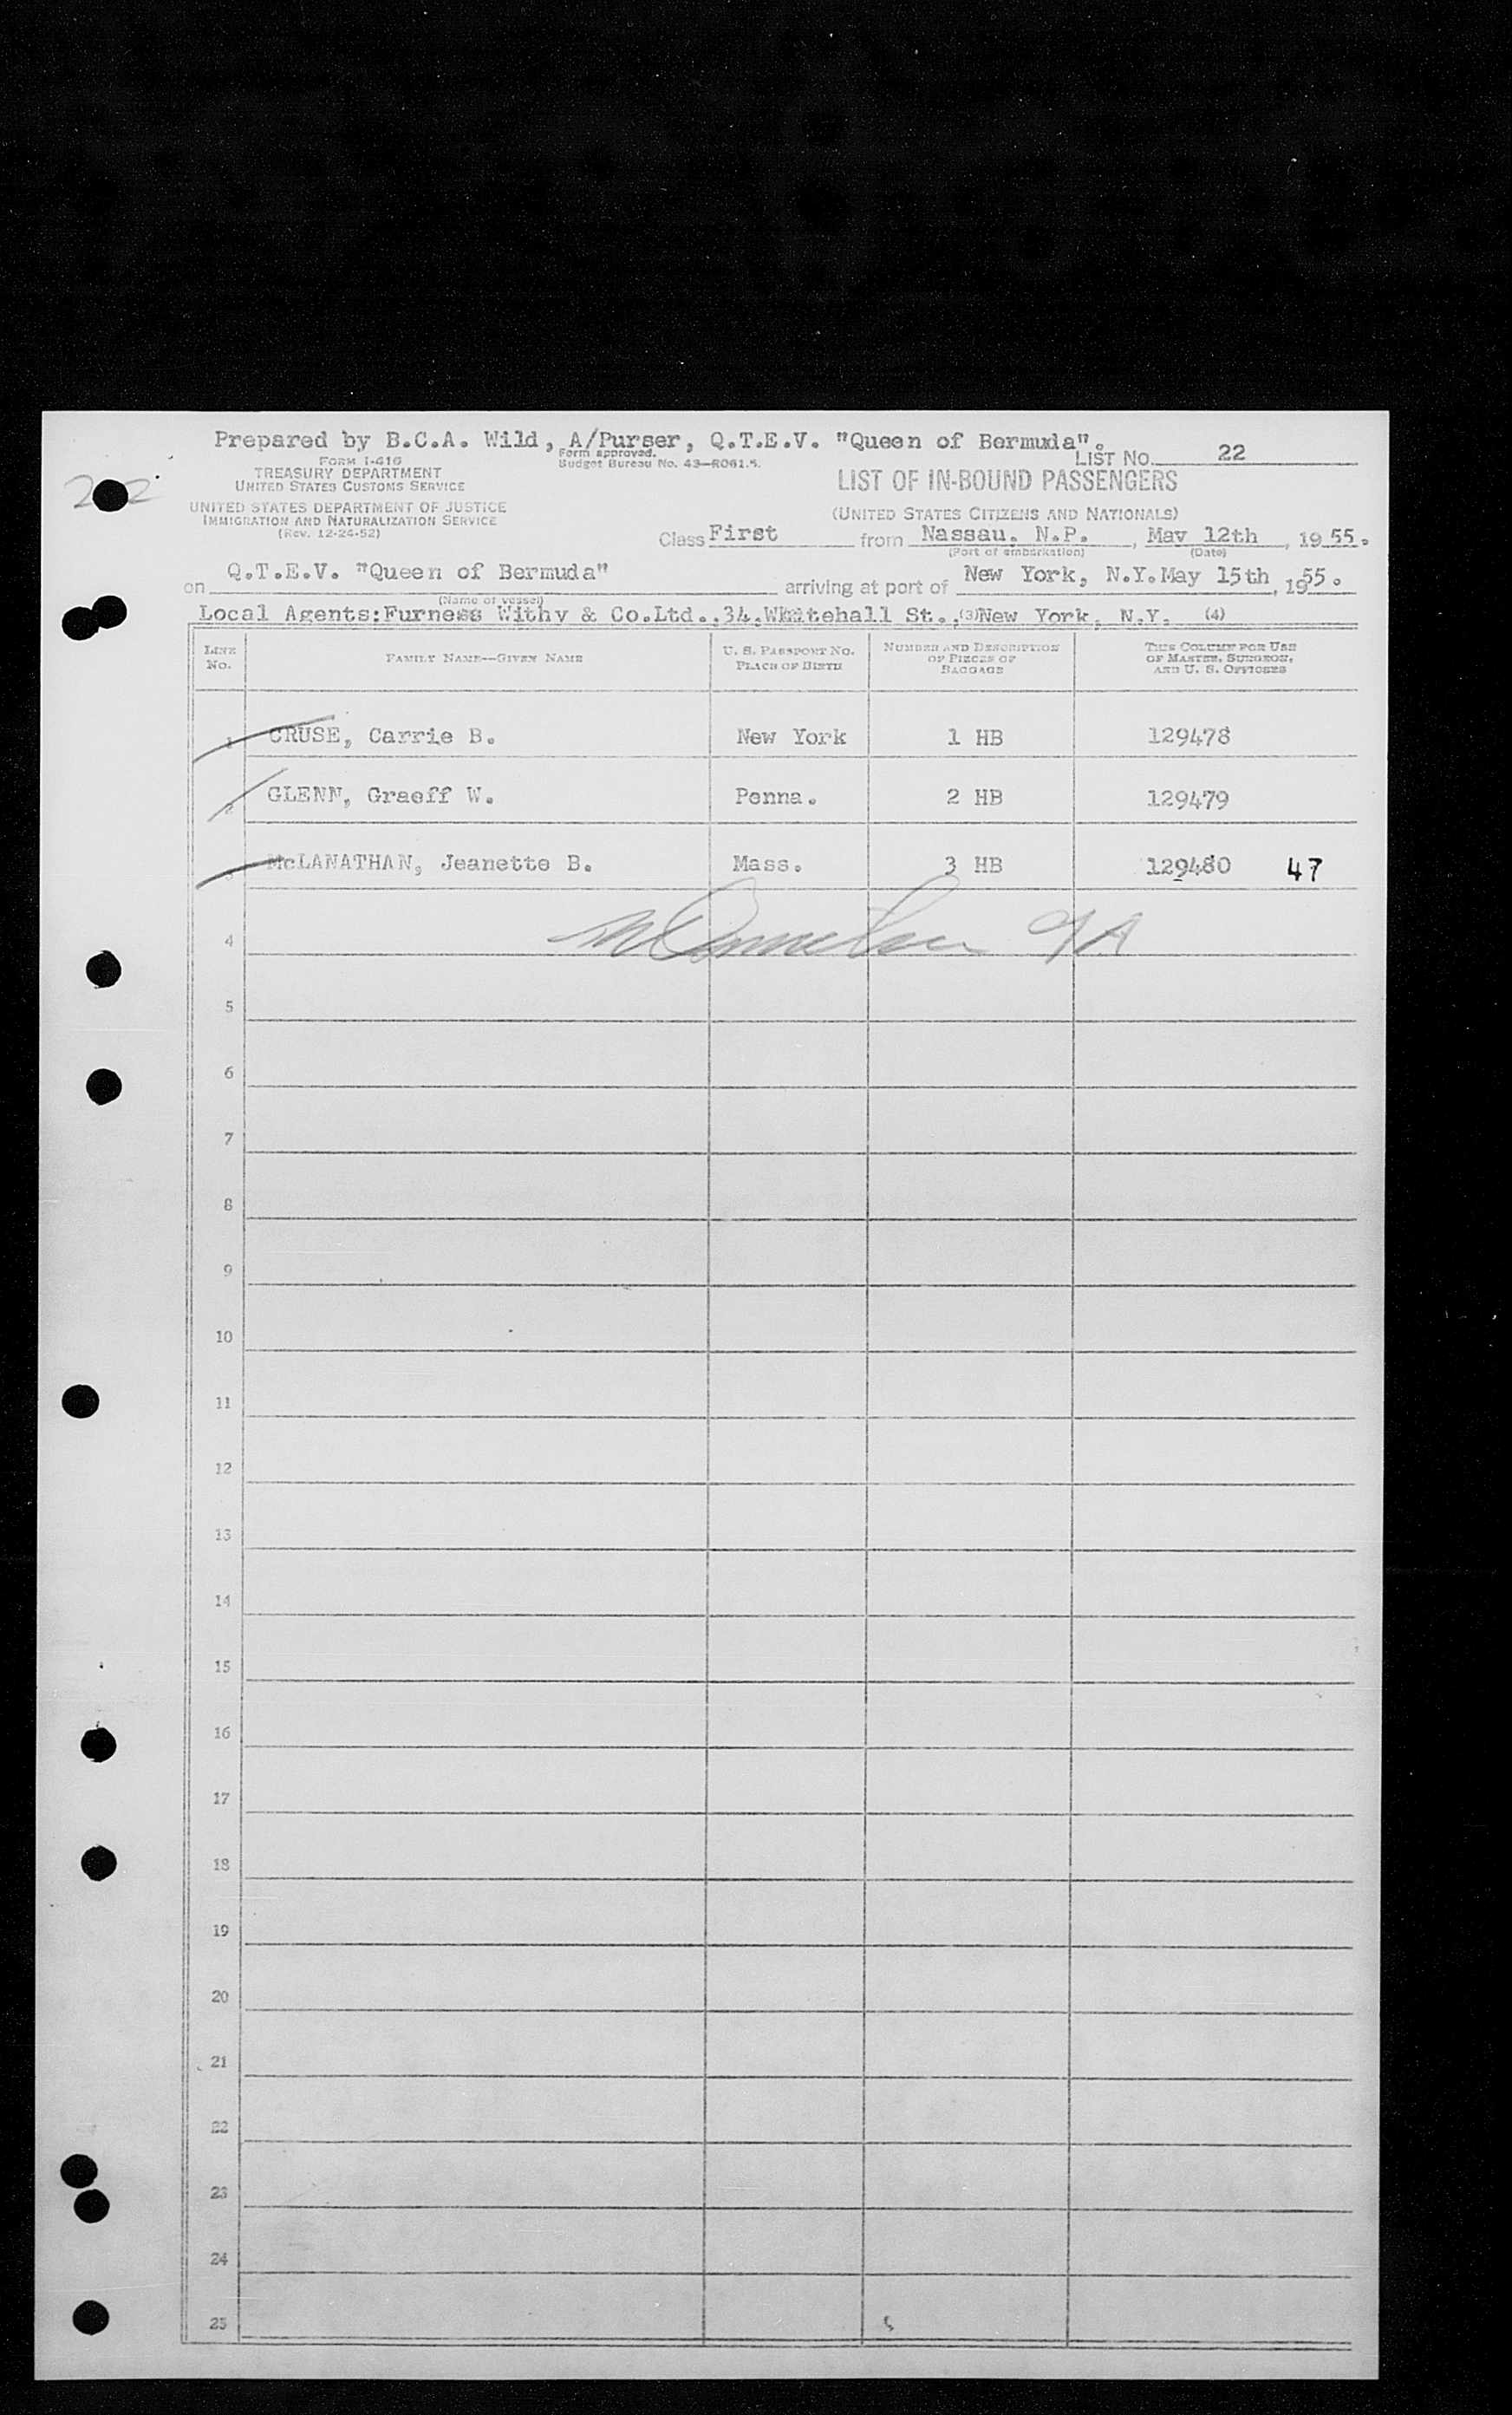 Prepared by B.C.A. Wild, A/Purser, Q.T.E.V. "Queen of Bermuda".
FORM I-416
TREASURY DEPARTMENT
UNITED STATES CUSTOMS SERVICE
UNITED STATES DEPARTMENT OF JUSTICE
IMMIGRATION AND NATURALIZATION SERVICE
(Rev. 12-24-52)
Form approved.
Budget Bureau No. 43—R061.5.
LIST NO. 22
LIST OF IN-BOUND PASSENGERS
(UNITED STATES CITIZENS AND NATIONALS)
Class First from Nassau. N.P., May 12th, 1955.
(Port of embarkation) (Date)
on Q.T.E.V. "Queen of Bermuda" arriving at port of New York, N.Y. May 15th, 1955.
(Name of vessel)
Local Agents: Furness Withy & Co.Ltd., 34, Whitehall St., (3) New York, N.Y. (4)
LINE NO. FAMILY NAME—GIVEN NAME U. S. PASSPORT NO. PLACE OF BIRTH NUMBER AND DESCRIPTION OF PIECES OF BAGGAGE THIS COLUMN FOR USE OF MASTER, SURGEON, AND U. S. OFFICERS
1 CRUSE, Carrie B. New York 1 HB 129478
2 GLENN, Graeff W. Penna. 2 HB 129479
3 McLANATHAN, Jeanette B. Mass. 3 HB 129480 47
4
5
6
7
8
9
10
11
12
13
14
15
16
17
18
19
20
21
22
23
24
25